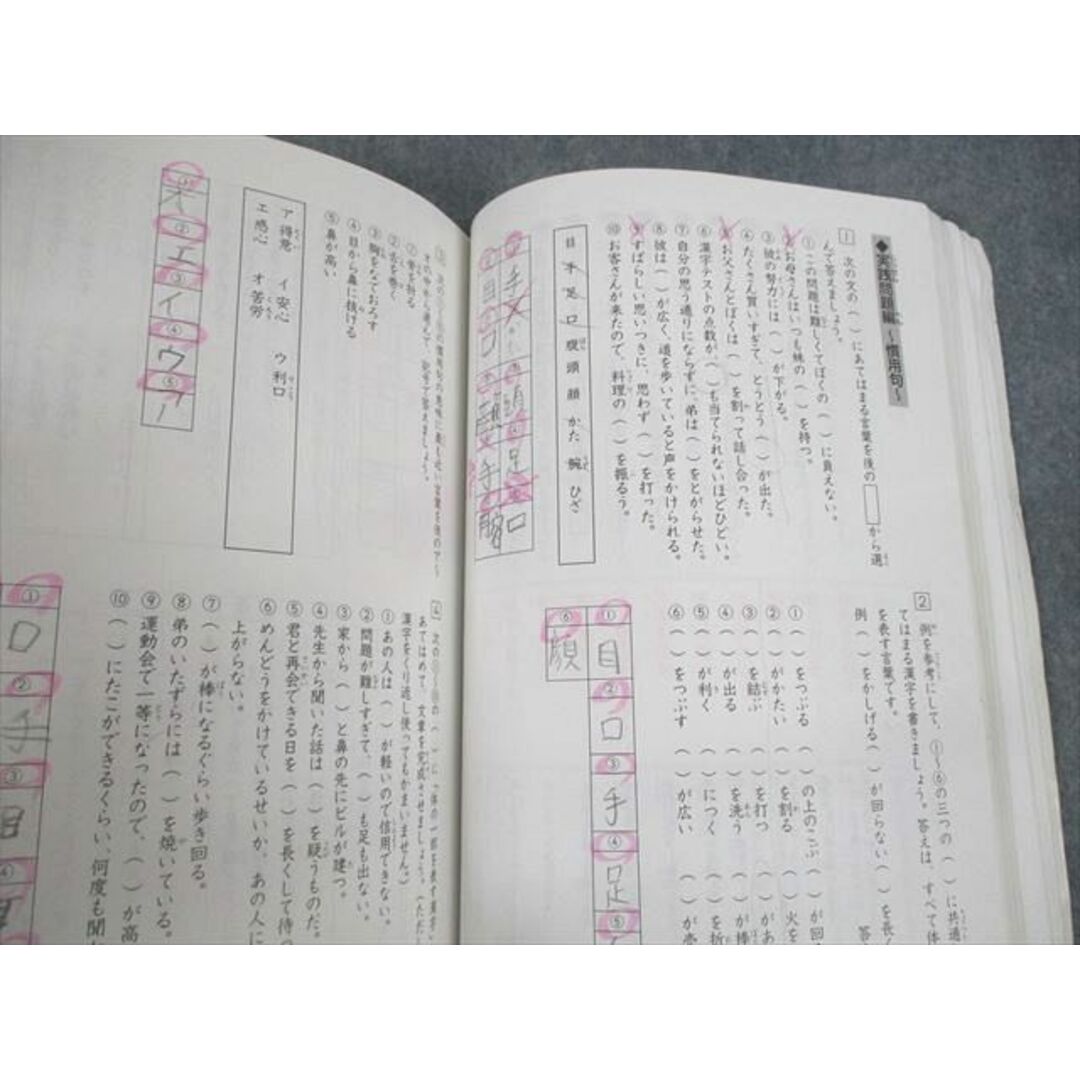 ◆実践問題編 ～慣用句～
1 次の文の（ ）にあてはまる言葉を後の□から選
んで答えましょう。
①この問題は難しくてぼくの（ ）に負えない。
②お母さんはいつも妹の（ ）を持つ。
③彼の努力には（ ）が下がる。
④たくさん買いすぎて、とうとう（ ）が出た。
⑤お父さんとぼくは（ ）を割って話し合った。
⑥漢字テストの点数が、（ ）も当てられないほどひどい。
⑦自分の思う通りにならずに、弟は（ ）をとがらせた。
⑧彼は（ ）が広く、道を歩いていると声をかけられる。
⑨すばらしい思いつきに、思わず（ ）を打った。
⑩お客さんが来たので、料理の（ ）を振るう。
目 手 足 口 腹 頭 顔 かた 腕 ひざ
手
頭
足
口
目
口
顔
手
腕
2 例を参考にして、①～⑥の三つの（ ）に共通
てはまる漢字を書きましょう。答えは、すべて体
を表す言葉です。
例（ ）をかしげる（ ）が回らない（ ）を長く
①（ ）をつぶる （ ）の上のこぶ （ ）が回
②（ ）がかたい （ ）を割る （ ）
③（ ）を結ぶ （ ）を打つ （ ）があ
④（ ）が出る （ ）を洗う （ ）が棒
⑤（ ）が利く （ ）につく （ ）を折
⑥（ ）をつぶす （ ）が広い （ ）が
① 目 ② 口 ③ 手 ④ 足 ⑤
⑥ 顔
3
その中から選んで、記号で答えましょう。
①骨を折る
②舌を巻く
③胸をなでおろす
④目から鼻に抜ける
⑤鼻が高い
ア 得意 イ 安心 ウ 利口
エ 感心 オ 苦労
① オ ② エ ③ イ ④ ウ ⑤ ア
4 次の①～⑩の（ ）に「体の一部を表す漢字
あてはめて、文章を完成させましょう。（ただし
漢字をくり返し使ってもかまいません。）
①あの人は（ ）が軽いので信用できない。
②問題が難しすぎて、（ ）も足も出ない。
③家から（ ）と鼻の先にビルが建つ。
④先生から聞いた話は（ ）を疑うものだ。
⑤君と再会できる日を（ ）を長くして待つ
⑥めんどうをかけているせいか、あの人に
上がらない。
⑦（ ）が棒になるぐらい歩き回る。
⑧弟のいたずらには（ ）を焼いている。
⑨運動会で一等になったので、（ ）が高
⑩（ ）にたこができるくらい、何度も聞
① 口 ② 手 ③ 目 ④